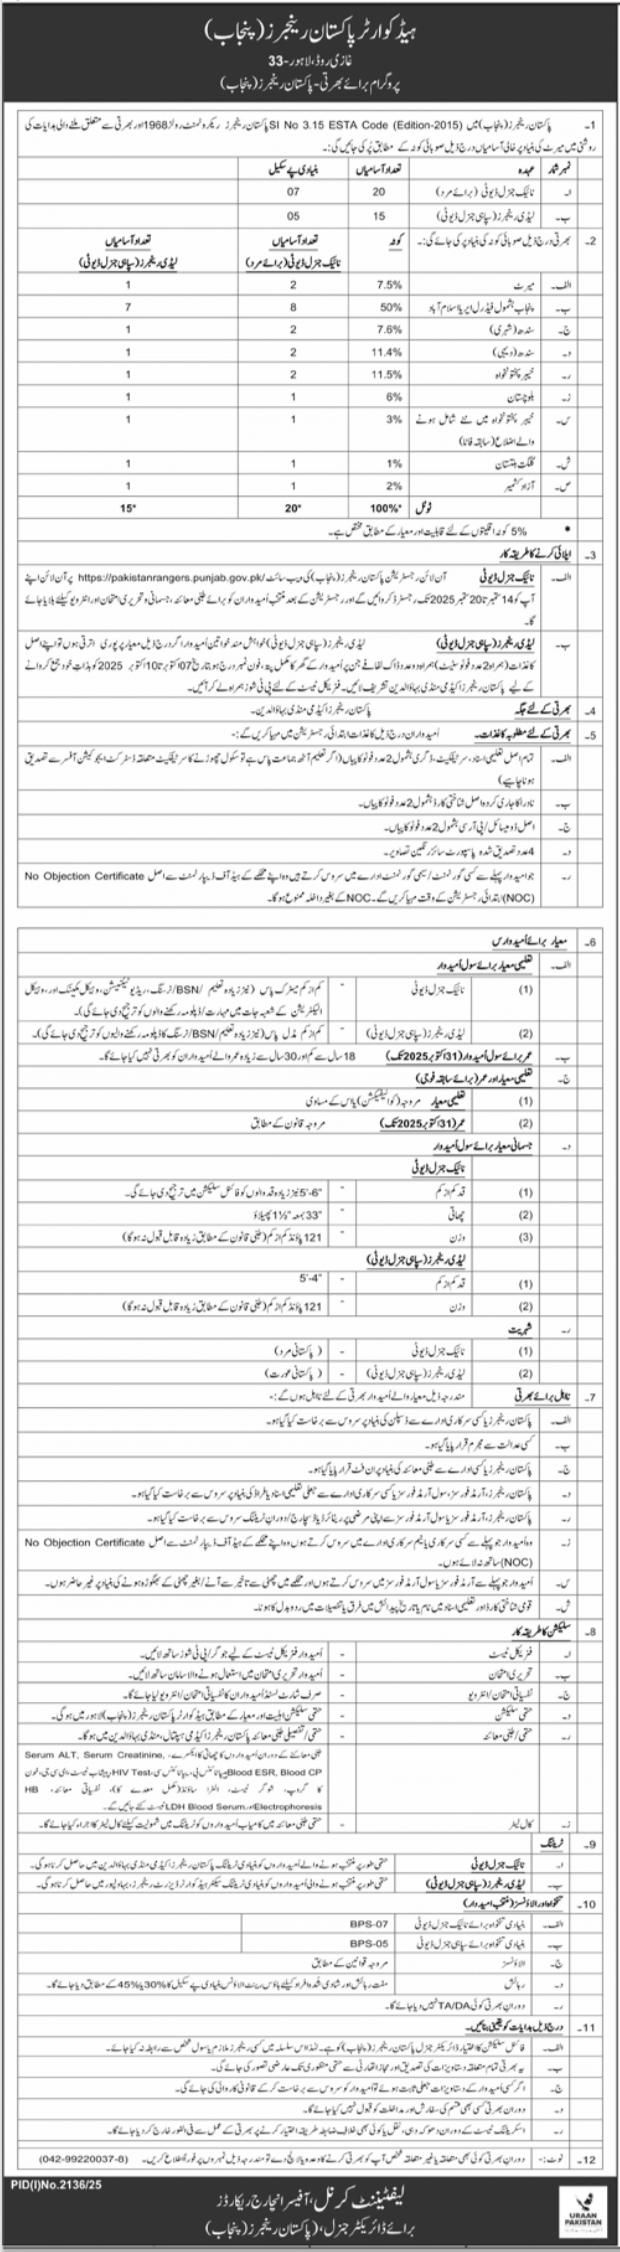 ہیڈ کوارٹر پاکستان رینجرز (پنجاب)
غازی روڈ، لاہور-33
پروگرام برائے بھرتی-پاکستان رینجرز (پنجاب)
1- پاکستان رینجرز (پنجاب) میں SI No 3.15 ESTA Code (Edition-2015) پاکستان رینجرز ریکروٹمنٹ رولز 1968 اور بھرتی سے متعلق ملنے والی ہدایات کی
روشنی میں میرٹ کی بنیاد پر خالی آسامیاں درج ذیل صوبائی کوٹہ کے مطابق پُر کی جائیں گی:-
نمبر شمار عہدہ تعداد آسامیاں بنیادی پے سکیل
ا- نائیک جنرل ڈیوٹی (برائے مرد) 20 07
ب- لیڈی رینجرز (سپاہی جنرل ڈیوٹی) 15 05
2- بھرتی درج ذیل صوبائی کوٹہ کی بنیاد پر کی جائے گی:- کوٹہ تعداد آسامیاں نائیک جنرل ڈیوٹی (برائے مرد) تعداد آسامیاں لیڈی رینجرز (سپاہی جنرل ڈیوٹی)
الف- میرٹ 7.5% 2 1
ب- پنجاب بشمول فیڈرل ایریا اسلام آباد 50% 8 7
ج- سندھ (شہری) 7.6% 2 1
د- سندھ (دیہی) 11.4% 2 1
ر- خیبر پختونخواہ 11.5% 2 1
ز- بلوچستان 6% 1 1
س- خیبر پختونخواہ میں نئے شامل ہونے 3% 1 1
والے اضلاع (سابقہ فاٹا)
ش- گلگت بلتستان 1% 1 1
ص- آزاد کشمیر 2% 1 1
ٹوٹل 100%* 20* 15*
* 5% کوٹہ اقلیتوں کے لئے قابلیت اور معیار کے مطابق مختص ہے۔
3- اپلائی کرنے کا طریقہ کار
الف- نائیک جنرل ڈیوٹی آن لائن رجسٹریشن پاکستان رینجرز (پنجاب) کی ویب سائٹ https://pakistanrangers.punjab.gov.pk/ پر آن لائن اپنے
آپ کو 14 ستمبر تا 20 ستمبر 2025 تک رجسٹرڈ کروائیں گے اور رجسٹریشن کے بعد منتخب اُمیدواران کو برائے طبی معائنہ، جسمانی و تحریری امتحان اور انٹرویو کیلئے بلایا جائے
گا۔
ب- لیڈی رینجرز (سپاہی جنرل ڈیوٹی) لیڈی رینجرز (سپاہی جنرل ڈیوٹی) خواہش مند خواتین اُمیدوار اگر درج ذیل معیار پر پوری اترتی ہوں تو اپنے اصل
کاغذات (ہمراہ 2 عدد فوٹو سٹیٹ) ہمراہ دو عدد ڈاک لفافے جن پر اُمیدوار کے گھر کا مکمل پتہ، فون نمبر درج ہو بتاریخ 07 اکتوبر تا 10 اکتوبر 2025 کو بذات خود جمع کروانے
کے لیے پاکستان رینجرز اکیڈمی منڈی بہاؤالدین تشریف لائیں۔ فزیکل ٹیسٹ کے لئے پی ٹی شوز ہمراہ لے کر آئیں۔
4- بھرتی کے لئے جگہ پاکستان رینجرز اکیڈمی منڈی بہاؤالدین۔
5- بھرتی کے لئے مطلوبہ کاغذات۔ اُمیدواران درج ذیل کاغذات ابتدائی رجسٹریشن میں مہیا کریں گے:-
الف- تمام اصل تعلیمی اسناد، سرٹیفکیٹ، ڈگری بشمول 2 عدد فوٹو کاپیاں (اگر تعلیم آٹھ جماعت پاس ہے تو سکول چھوڑنے کا سرٹیفکیٹ متعلقہ ڈسٹرکٹ ایجوکیشن آفیسر سے تصدیق
ہونا چاہیے)
ب- نادرا کا جاری کردہ اصل شناختی کارڈ بشمول 2 عدد فوٹو کاپیاں۔
ج- اصل ڈومیسائل/پی آر سی بشمول 2 عدد فوٹو کاپیاں۔
د- 4 عدد تصدیق شدہ پاسپورٹ سائز رنگین تصاویر۔
ر- جو امیدوار پہلے سے کسی گورنمنٹ/سیمی گورنمنٹ ادارے میں سروس کرتے ہیں وہ اپنے محکمے کے ہیڈ آف ڈیپارٹمنٹ سے اصل No Objection Certificate
(NOC) ابتدائی رجسٹریشن کے وقت مہیا کریں گے۔ NOC کے بغیر داخلہ ممنوع ہو گا۔
6- معیار برائے اُمیدوارس
الف- تعلیمی معیار برائے سول اُمیدوار
(1) نائیک جنرل ڈیوٹی - کم از کم میٹرک پاس (نیز زیادہ تعلیم/BSN/نرسنگ، ریڈیو ٹیکنیشن، وہیکل مکینک اور، وہیکل
الیکٹریشن کے شعبہ جات میں مہارت/ڈپلومہ رکھنے والوں کو ترجیح دی جائے گی)۔
(2) لیڈی رینجرز (سپاہی جنرل ڈیوٹی) - کم از کم مڈل پاس (نیز زیادہ تعلیم/BSN/نرسنگ کا ڈپلومہ رکھنے والیوں کو ترجیح دی جائے گی)۔
ب- عمر برائے سول اُمیدوار (31 اکتوبر 2025 تک) 18 سال سے کم اور 30 سال سے زیادہ عمر والے اُمیدواران کو بھرتی نہیں کیا جائے گا۔
ج- تعلیمی معیار اور عمر (برائے سابقہ فوجی)
(1) تعلیمی معیار مروجہ (کوالیفکیشن) یا اس کے مساوی
(2) عمر (31 اکتوبر 2025 تک) مروجہ قانون کے مطابق
د- جسمانی معیار برائے سول اُمیدوار
نائیک جنرل ڈیوٹی
(1) قد کم از کم - 5'-6" نیز زیادہ قد والوں کو فائنل سلیکشن میں ترجیح دی جائے گی۔
(2) چھاتی - 33" بمعہ 1½" پھیلاؤ
(3) وزن - 121 پاؤنڈ کم از کم (طبی قانون کے مطابق زیادہ قابل قبول نہ ہو گا)
لیڈی رینجرز (سپاہی جنرل ڈیوٹی)
(1) قد کم از کم - 5'-4"
(2) وزن - 121 پاؤنڈ کم از کم (طبی قانون کے مطابق زیادہ قابل قبول نہ ہو گا)
ر- شہریت
(1) نائیک جنرل ڈیوٹی - (پاکستانی مرد)
(2) لیڈی رینجرز (سپاہی جنرل ڈیوٹی) - (پاکستانی عورت)
7- نااہل برائے بھرتی مندرجہ ذیل معیار والے اُمیدوار بھرتی کے لئے نااہل ہوں گے:-
الف- پاکستان رینجرز یا کسی سرکاری ادارے سے ڈسپلن کی بنیاد پر سروس سے برخاست کیا گیا ہو۔
ب- کسی عدالت سے مجرم قرار پایا گیا ہو۔
ج- پاکستان رینجرز یا کسی ادارے سے طبی معائنہ کی بنیاد پر ان فٹ قرار پایا گیا ہو۔
د- پاکستان رینجرز، آرمڈ فورسز، سول آرمڈ فورسز یا کسی سرکاری ادارے سے جعلی تعلیمی اسناد یا فراڈ کی بنیاد پر سروس سے برخاست کیا گیا ہو۔
ر- پاکستان رینجرز، آرمڈ فورسز یا سول آرمڈ فورسز سے اپنی مرضی پر ریٹائرڈ یا ڈسچارج/دوران ٹریننگ سروس سے برخاست کیا گیا ہو۔
ز- وہ اُمیدوار جو پہلے سے کسی سرکاری یا نیم سرکاری ادارے میں سروس کرتے ہوں وہ اپنے محکمے کے ہیڈ آف ڈیپارٹمنٹ سے اصل No Objection Certificate
(NOC) ساتھ نہ لائے ہوں۔
س- اُمیدوار جو پہلے سے آرمڈ فورسز یا سول آرمڈ فورسز میں سروس کرتے ہوں اور محکمے میں چھٹی سے تاخیر سے آنے/بغیر چھٹی کے بھگوڑہ ہونے کی بنیاد پر غیر حاضر ہوں۔
ش- قومی شناختی کارڈ اور تعلیمی اسناد میں نام یا تاریخ پیدائش میں فرق یا تفصیلات میں ردو بدل کا ہونا۔
8- سلیکشن کا طریقہ کار
ا- فزیکل ٹیسٹ - اُمیدوار فزیکل ٹیسٹ کے لیے جوگر/پی ٹی شوز ساتھ لائیں۔
ب- تحریری امتحان - اُمیدوار تحریری امتحان میں استعمال ہونے والا سامان ساتھ لائیں۔
ج- نفسیاتی امتحان/انٹرویو - صرف شارٹ لسٹڈ اُمیدواران کا نفسیاتی امتحان/انٹرویو لیا جائے گا۔
د- حتمی سلیکشن - حتمی سلیکشن اہلیت اور معیار کے مطابق ہیڈ کوارٹر پاکستان رینجرز (پنجاب) لاہور میں ہو گی۔
ر- حتمی/طبی معائنہ - حتمی/تفصیلی طبی معائنہ پاکستان رینجرز اکیڈمی ہسپتال، منڈی بہاؤالدین میں ہو گا۔
طبی معائنے کے دوران اُمیدواروں کا چھاتی کا ایکسرے، Serum ALT, Serum Creatinine,
Blood ESR, Blood CP، ہیپاٹائٹس بی، ہیپاٹائٹس سی، HIV Test، پیشاب ٹیسٹ، ای سی جی، خون
کا گروپ، شوگر ٹیسٹ، الٹرا ساؤنڈ (مکمل معدے کا)، نفسیاتی معائنہ، HB
Electrophoresis اور LDH Blood Serum ٹیسٹ کئے جائیں گے۔
ز- کال لیٹر - حتمی طبی معائنہ میں کامیاب اُمیدواروں کو ٹریننگ میں شمولیت کیلئے کال لیٹر کا اجراء کیا جائے گا۔
9- ٹریننگ
ا- نائیک جنرل ڈیوٹی حتمی طور پر منتخب ہونے والے اُمیدواروں کو بنیادی ٹریننگ پاکستان رینجرز اکیڈمی منڈی بہاؤالدین میں حاصل کرنا ہو گی۔
ب- لیڈی رینجرز (سپاہی جنرل ڈیوٹی) حتمی طور پر منتخب ہونے والی اُمیدواروں کو بنیادی ٹریننگ سیکٹر ہیڈ کوارٹر ڈیزرٹ رینجرز، بہاولپور میں حاصل کرنا ہو گی۔
10- تنخواہ اور الاؤنسز (منتخب امیدوار)
الف- بنیادی تنخواہ برائے نائیک جنرل ڈیوٹی BPS-07
ب- بنیادی تنخواہ برائے سپاہی جنرل ڈیوٹی BPS-05
ج- الاؤنسز مروجہ قوانین کے مطابق
د- رہائش مفت رہائش اور شادی شدہ افراد کیلئے ہاؤس رینٹ الاؤنس بنیادی پے سکیل کا 30% یا 45% کے مطابق دیا جائے گا۔
ر- دوران بھرتی کوئی TA/DA نہیں دیا جائے گا۔
11- درج ذیل ہدایات کو یقینی بنائیں۔
الف- فائنل سلیکشن کا اختیار ڈائریکٹر جنرل پاکستان رینجرز (پنجاب) کو ہے۔ لہذا اس سلسلہ میں کسی رینجرز ملازم یا سول شخص سے رابطہ نہ کیا جائے۔
ب- یہ بھرتی تمام متعلقہ دستاویزات کی تصدیق اور مجاز اتھارٹی سے حتمی منظوری تک عارضی تصور کی جائے گی۔
ج- اگر کسی اُمیدوار کے دستاویزات جعلی ثابت ہوئے تو اُمیدوار کو سروس سے برخاست کر کے قانونی کاروائی کی جائے گی۔
د- دوران بھرتی کسی بھی قسم کی سفارش اور مداخلت کو قبول نہیں کیا جائے گا۔
ر- اسکریننگ ٹیسٹ کے دوران دھوکہ دہی، نقل یا کوئی بھی خلاف ضابطہ طریقہ اختیار کرنے پر بھرتی کے عمل سے فی الفور خارج کر دیا جائے گا۔
12- نوٹ:- دوران بھرتی کوئی بھی متعلقہ یا غیر متعلقہ شخص آپ کو بھرتی کرنے کا وعدہ یا لالچ دے تو مندرجہ ذیل نمبروں پر فوراً اطلاع کریں۔ (042-99220037-8)
PID(I)No.2136/25
لیفٹیننٹ کرنل، آفیسر انچارج ریکارڈز
برائے ڈائریکٹر جنرل، (پاکستان رینجرز (پنجاب)
URAAN
PAKISTAN